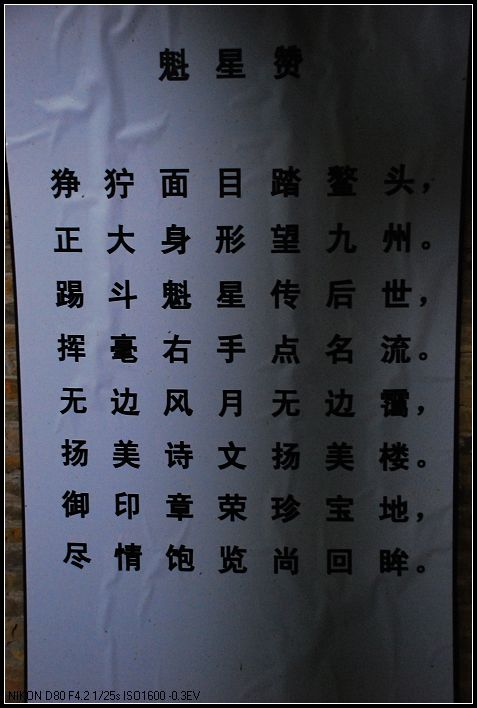 魁星赞
狰狞面目踏鳌头，
正大身形望九州。
踢斗魁星传后世，
挥毫右手点名流。
无边风月无边霭，
扬美诗文扬美楼。
御印章荣珍宝地，
尽情饱览尚回眸。
NIKON D80 F4.2 1/25s ISO1600 -0.3EV